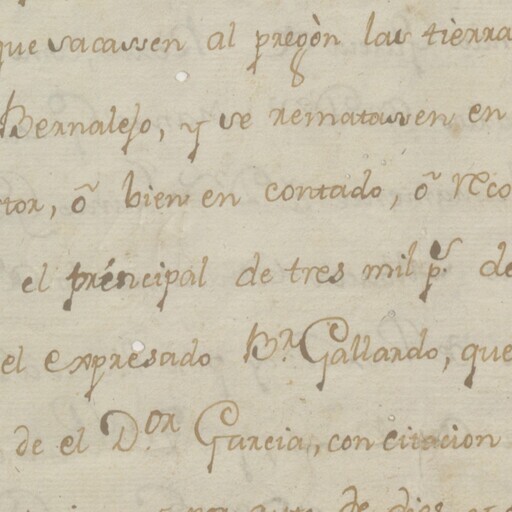 que sacassen al pregòn las tierra
Bernalejo, y se rematassen en
tor, õ bien en contado, õ reco
el principal de tres mil p.s de
el expresado B.r Gallardo, que
de el D.or Garcia, con citacion
de dies